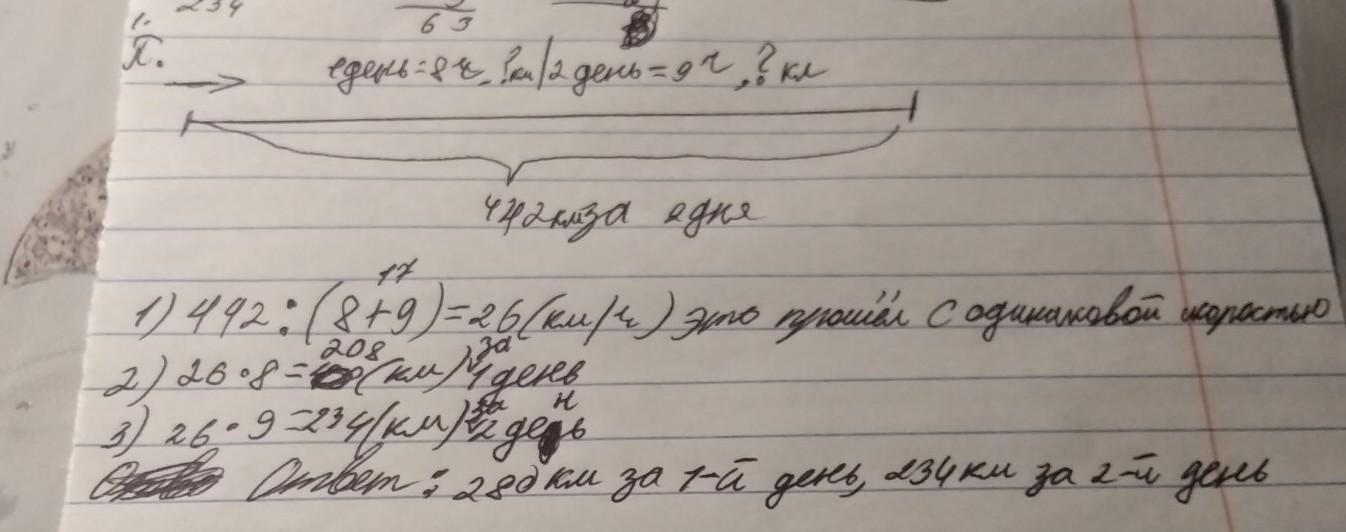 1. 234
63
П.
1день=8ч,?км|2день=9ч,?км
442км за 2дня
17
1) 442:(8+9)=26(км/ч) это прошёл с одинаковой скоростью
208
2) 26·8=(км) за 1 день
3) 26·9=234(км) за 2 день
Ответ: 280км за 1-й день, 234км за 2-й день